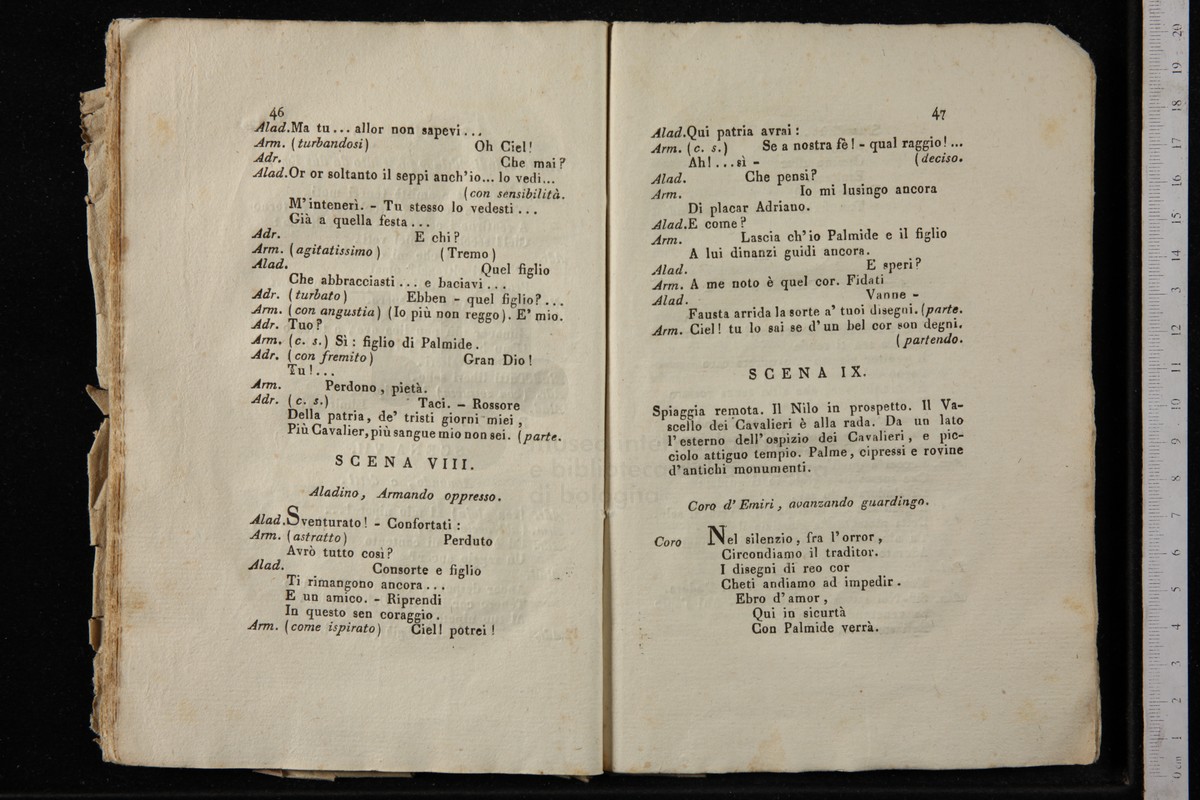 46
Alad. Ma tu... allor non sapevi...
Arm. (turbandosi) Oh Ciel!
Adr. Che mai?
Alad. Or or soltanto il seppi anch'io... lo vedi...
(con sensibilità.
M'intenerì. - Tu stesso lo vedesti...
Già a quella festa...
Adr. E chi?
Arm. (agitatissimo) (Tremo)
Alad. Quel figlio
Che abbracciasti... e baciavi...
Adr. (turbato) Ebben - quel figlio?...
Arm. (con angustia) (Io più non reggo). E' mio.
Adr. Tuo?
Arm. (c. s.) Sì: figlio di Palmide.
Adr. (con fremito) Gran Dio!
Tu!...
Arm. Perdono, pietà.
Adr. (c. s.) Taci. - Rossore
Della patria, de' tristi giorni miei,
Più Cavalier, più sangue mio non sei. (parte.
SCENA VIII.
Aladino, Armando oppresso.
Alad. Sventurato! - Confortati:
Arm. (astratto) Perduto
Avrò tutto così?
Alad. Consorte e figlio
Ti rimangono ancora...
E un amico. - Riprendi
In questo sen coraggio.
Arm. (come ispirato) Ciel! potrei!
47
Alad. Qui patria avrai:
Arm. (c. s.) Se a nostra fè! - qual raggio!...
Ah!...sì - (deciso.
Alad. Che pensi?
Arm. Io mi lusingo ancora
Di placar Adriano.
Alad. E come?
Arm. Lascia ch'io Palmide e il figlio
A lui dinanzi guidi ancora.
Alad. E speri?
Arm. A me noto è quel cor. Fidati
Alad. Vanne -
Fausta arrida la sorte a' tuoi disegni. (parte.
Arm. Ciel! tu lo sai se d'un bel cor son degni.
(partendo.
SCENA IX.
Spiaggia remota. Il Nilo in prospetto. Il Va-
scello dei Cavalieri è alla rada. Da un lato
l'esterno dell'ospizio dei Cavalieri, e pic-
ciolo attiguo tempio. Palme, cipressi e rovine
d'antichi monumenti.
Coro d'Emiri, avanzando guardingo.
Coro Nel silenzio, fra l'orror,
Circondiamo il traditor.
I disegni di reo cor
Cheti andiamo ad impedir.
Ebro d'amor,
Qui in sicurtà
Con Palmide verrà.